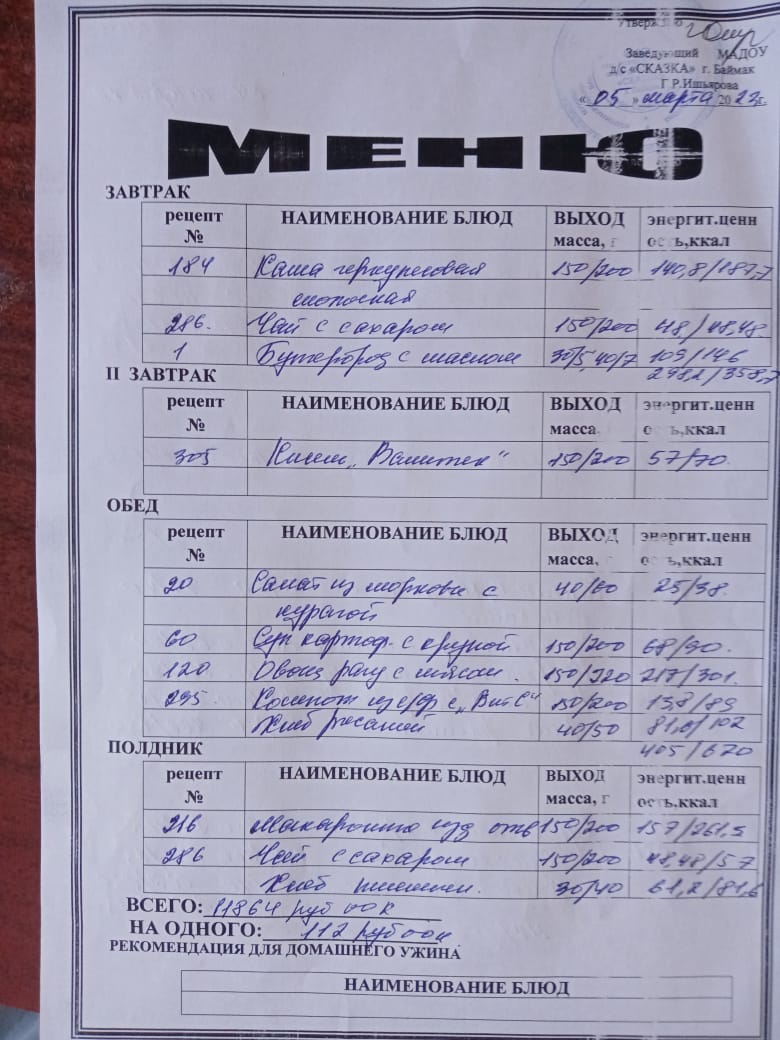 Утверждаю
Заведующий МАДОУ
д/с «СКАЗКА» г. Баймак
Г.Р.Ишьярова
«05» марта 2023г.
МЕНЮ
ЗАВТРАК
рецепт № НАИМЕНОВАНИЕ БЛЮД ВЫХОД масса, г энергит.ценн ость,ккал
184 Каша геркулесовая 150/200 140,8/187,7
молочная
286. Чай с сахаром 150/200 48/48,48.
1 Бутерброд с маслом 30/5,40/7 109/146
298,2/358,7
II ЗАВТРАК
рецепт № НАИМЕНОВАНИЕ БЛЮД ВЫХОД масса. энергит.ценн ость,ккал
305 Кисель „Валитек“ 150/200 57/70.
ОБЕД
рецепт № НАИМЕНОВАНИЕ БЛЮД ВЫХОД масса, г энергит.ценн ость,ккал
20 Салат из моркови с 40/60 25/38.
курагой
60 Суп картоф. с крупой 150/200 68/90.
120 Овощ рагу с мясом. 150/220 217/301.
295. Компот из с/ф с „Вит С“ 150/200 13,8/89
Хлеб ржаной 40/50 81,6/102
405/620
ПОЛДНИК
рецепт № НАИМЕНОВАНИЕ БЛЮД ВЫХОД масса, г энергит.ценн ость,ккал
216 Макаронно изд отв 150/200 157/261,5
286 Чай с сахаром 150/200 48,48/57
Хлеб пшенич. 30/40 61,2/81,6
ВСЕГО: 11864 руб 00к
НА ОДНОГО: 112 руб 00к
РЕКОМЕНДАЦИЯ ДЛЯ ДОМАШНЕГО УЖИНА
НАИМЕНОВАНИЕ БЛЮД